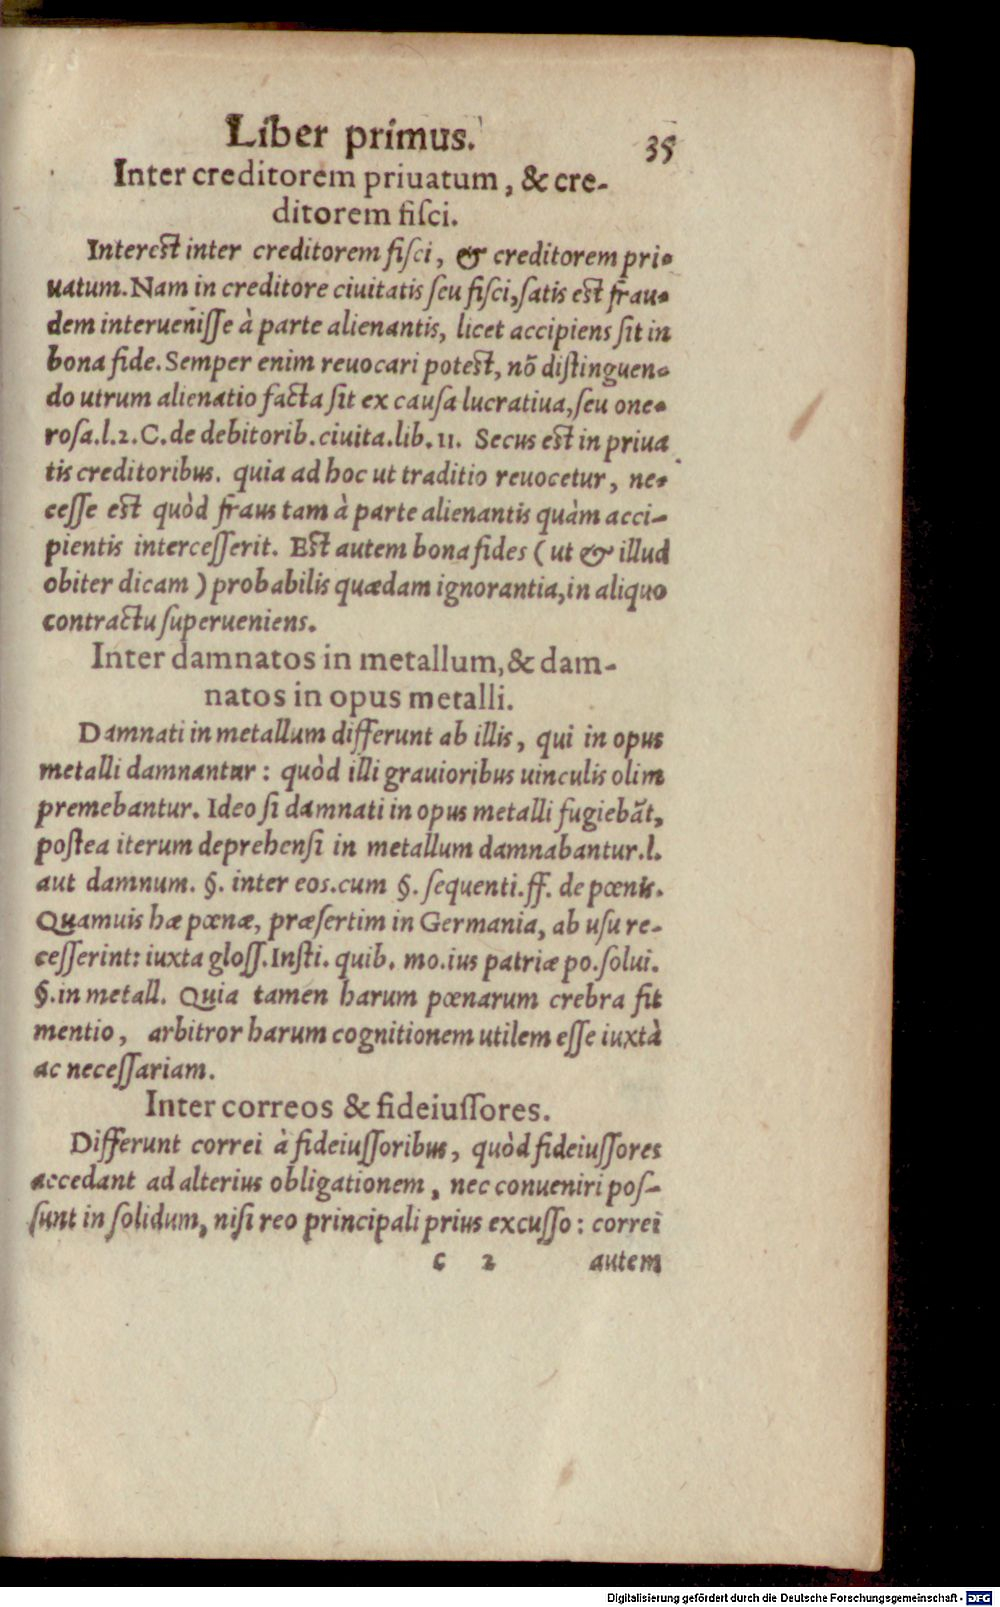 Liber primus.
35
Inter creditorem priuatum, & cre-
ditorem fiſci.
Intereſt inter creditorem fiſci, & creditorem pri-
uatum. Nam in creditore ciuitatis ſeu fiſci, ſatis eſt frau-
dem interueniſſe à parte alienantis, licet accipiens ſit in
bona fide. Semper enim reuocari poteſt, nõ diſtinguen-
do utrum alienatio facta ſit ex cauſa lucratiua, ſeu one-
roſa. l. 2. C. de debitorib. ciuita. lib. 11. Secus eſt in priua
tis creditoribus. quia ad hoc ut traditio reuocetur, ne-
ceſſe eſt quòd fraus tam à parte alienantis quàm acci-
pientis interceſſerit. Eſt autem bona fides (ut & illud
obiter dicam) probabilis quædam ignorantia, in aliquo
contractu ſuperueniens.
Inter damnatos in metallum, & dam-
natos in opus metalli.
Damnati in metallum differunt ab illis, qui in opus
metalli damnantur: quòd illi grauioribus uinculis olim
premebantur. Ideo ſi damnati in opus metalli fugiebãt,
poſtea iterum deprehenſi in metallum damnabantur. l.
aut damnum. §. inter eos. cum §. ſequenti. ff. de pœnis.
Quamuis hæ pœnæ, præſertim in Germania, ab uſu re-
ceſſerint: iuxta gloſſ. Inſti. quib. mo. ius patriæ po. ſolui.
§. in metall. Quia tamen harum pœnarum crebra fit
mentio, arbitror harum cognitionem utilem eſſe iuxtà
ac neceſſariam.
Inter correos & fideiuſſores.
Differunt correi à fideiuſſoribus, quòd fideiuſſores
accedant ad alterius obligationem, nec conueniri poſ-
ſunt in ſolidum, niſi reo principali prius excuſſo: correi
c 2 autem
Digitalisierung gefördert durch die Deutsche Forschungsgemeinschaft - DFG